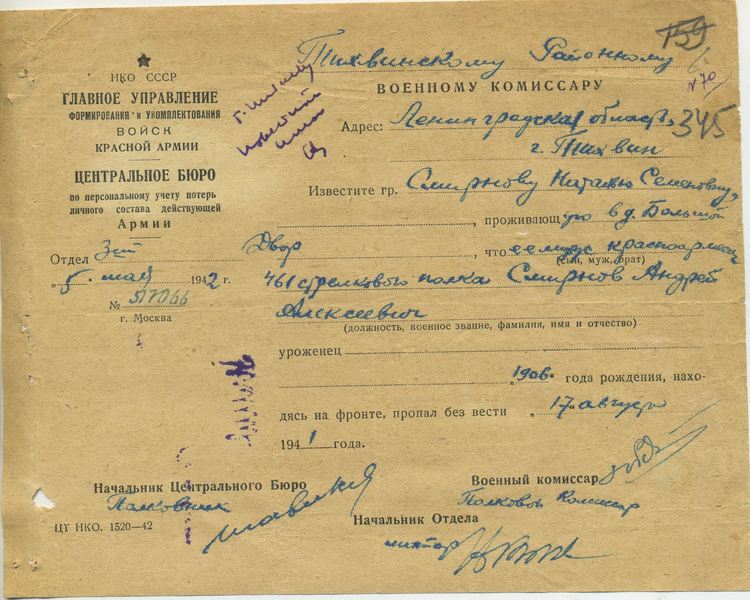 НКО СССР
ГЛАВНОЕ УПРАВЛЕНИЕ
ФОРМИРОВАНИЯ и УКОМПЛЕКТОВАНИЯ
ВОЙСК
КРАСНОЙ АРМИИ
ЦЕНТРАЛЬНОЕ БЮРО
по персональному учету потерь
личного состава действующей
Армии
Отдел 3ий
„5" мая 1942 г.
№
г. Москва
159
№ 70
345
Тихвинскому Районному
ВОЕННОМУ КОМИССАРУ
Адрес: Ленинградская область,
г. Тихвин
Известите гр. Смирнову Наталью Семеновну,
, проживающую в д. Большой
Двор, что ее муж красноармеец
(сын, муж, брат)
461 стрелкового полка Смирнов Андрей
Алексеевич
(должность, военное звание, фамилия, имя и отчество)
уроженец
„1906" года рождения, нахо-
дясь на фронте, пропал без вести „17" августа
1941 года.
Начальник Центрального Бюро
Полковник
Военный комиссар
Полковой Комиссар
Начальник Отдела
ЦУ НКО. 1520—42